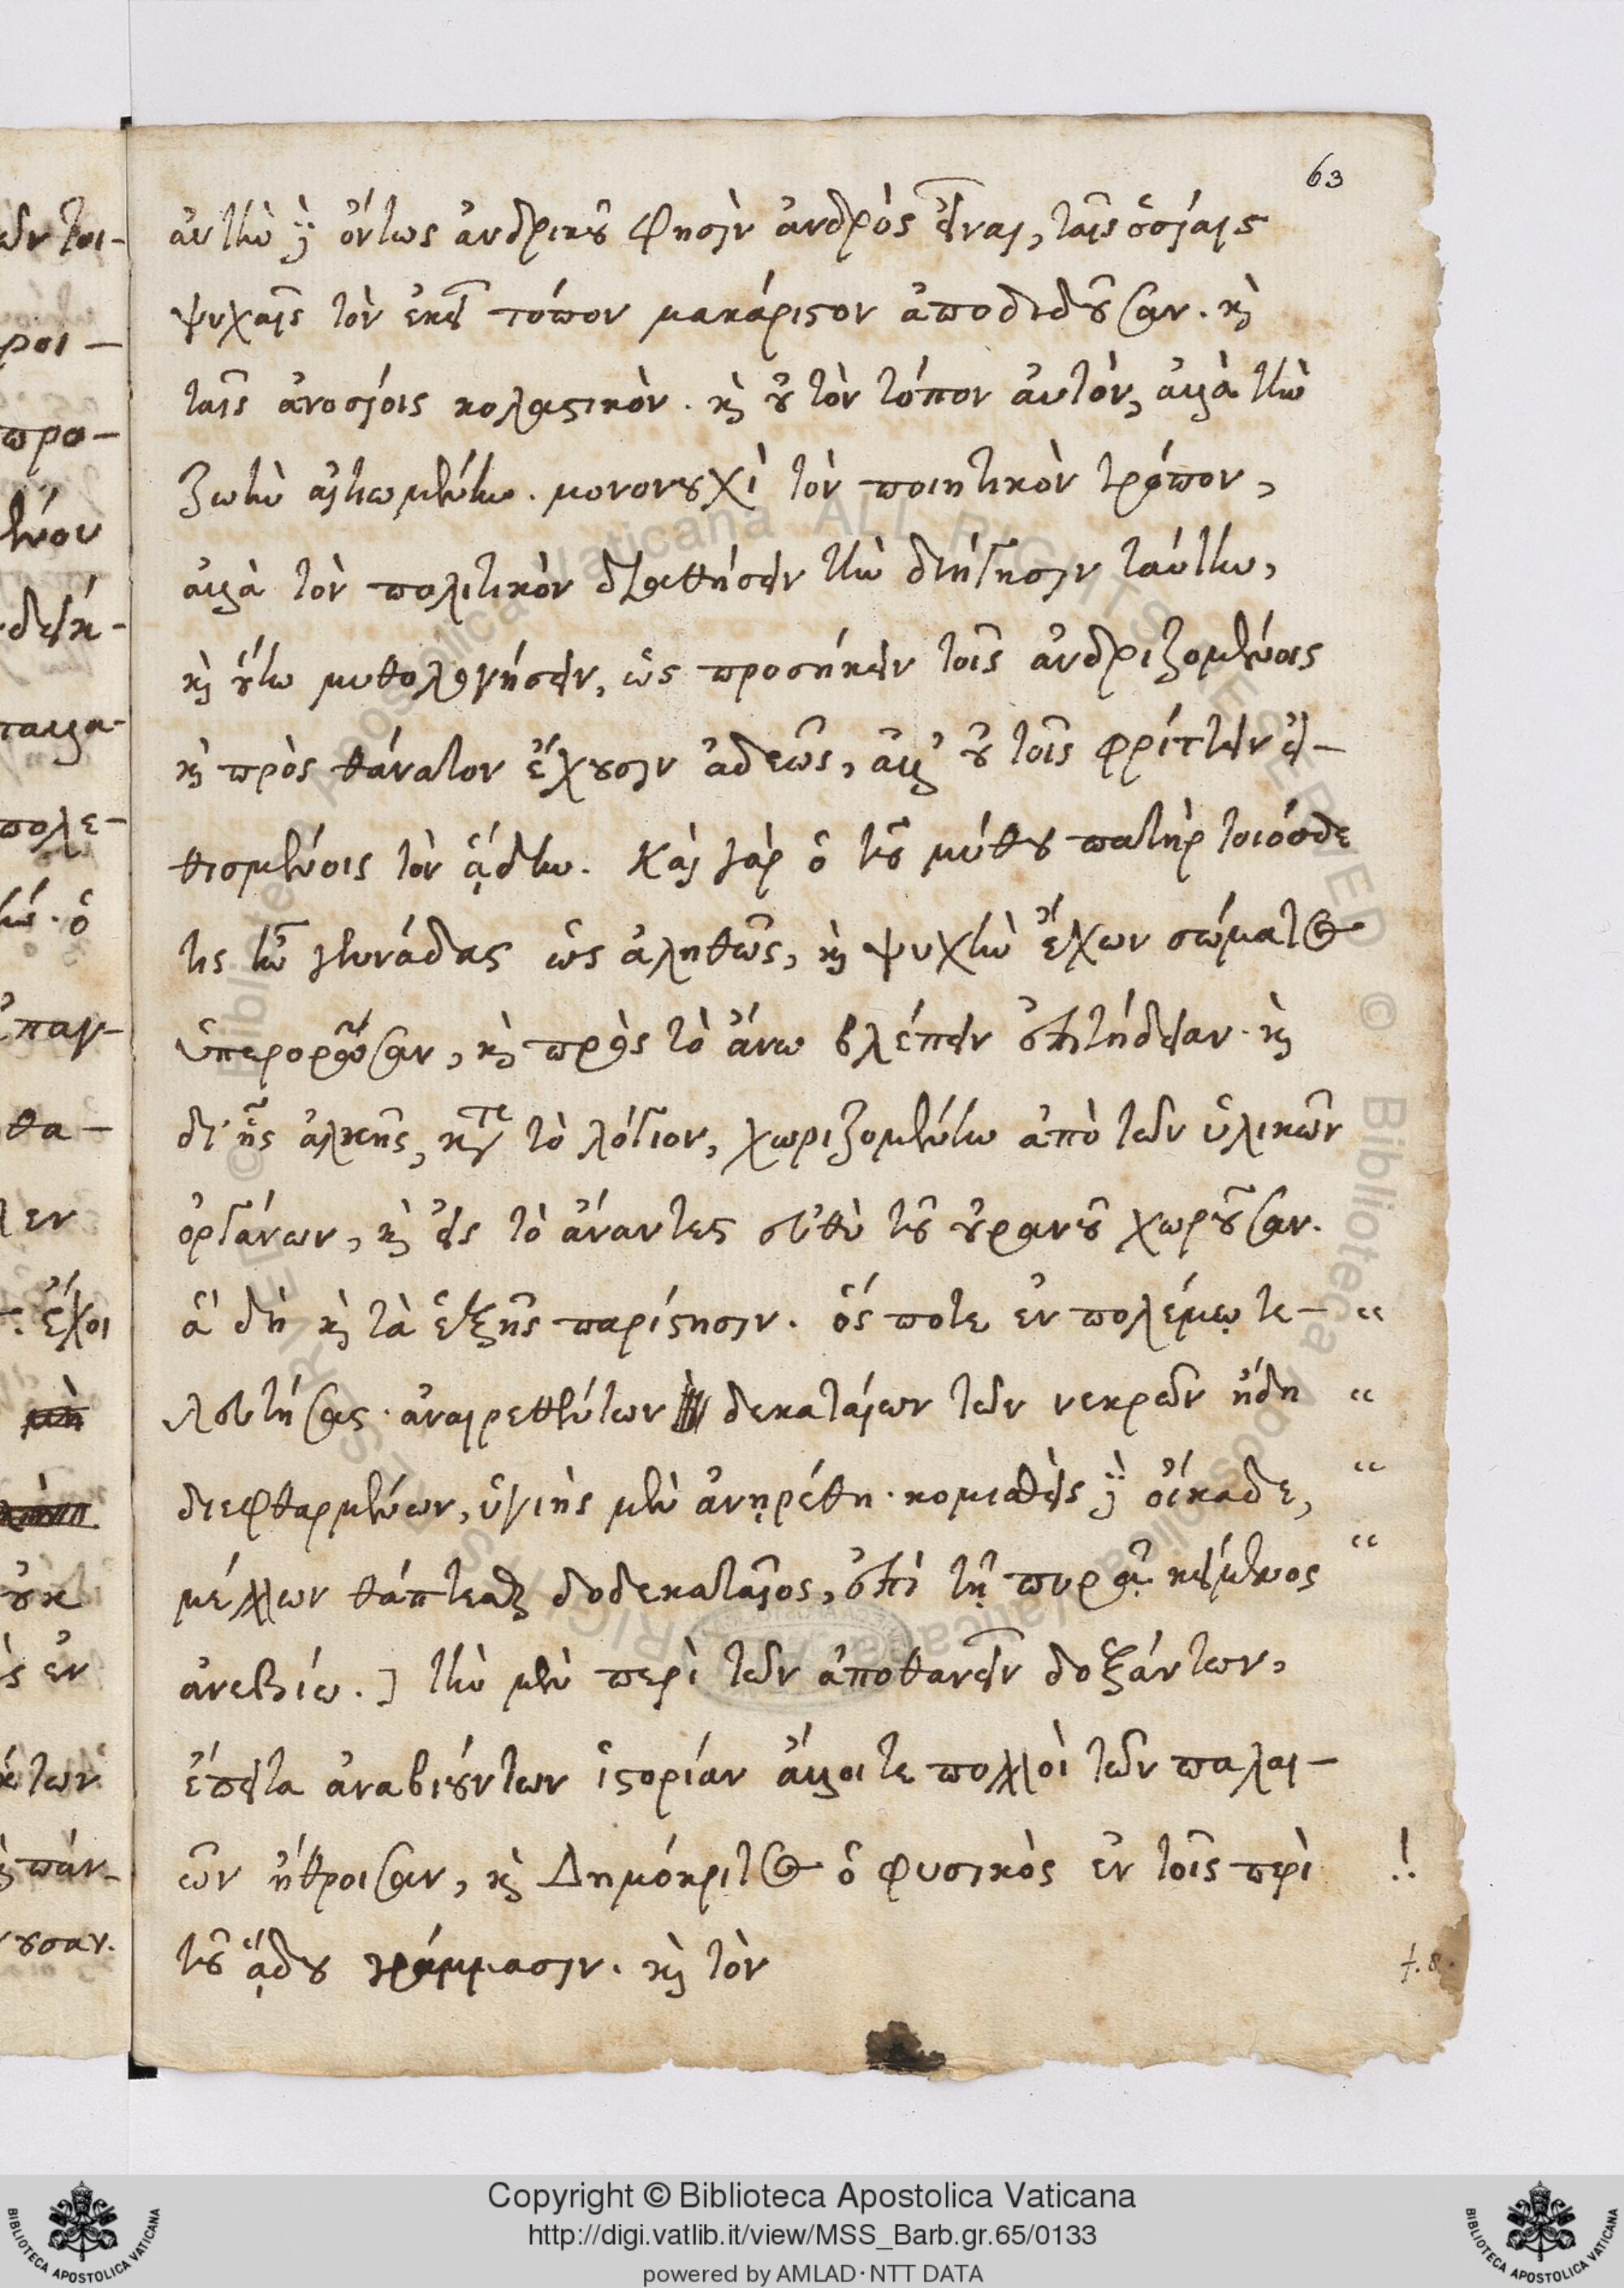 63
αὐτὴν δὲ ὄντως ἀνδρικοῦ φησὶν ἀνδρὸς εἶναι, ταῖς ὁσίαις
ψυχαῖς τὸν ἐκεῖ τόπον μακάριστον ἀποδιδοῦσαν. καὶ
ταῖς ἀνοσίοις κολαστικόν. καὶ οὐ τὸν τόπον αὐτὸν, ἀλλὰ τὴν
ζωὴν αἰτιωμένην. μονονουχὶ τὸν ποιητικὸν τρόπον,
ἀλλὰ τὸν πολιτικὸν διαθήσειν τὴν διήγησιν ταύτην,
καὶ οὕτω μυθολογήσειν, ὡς προσήκειν τοῖς ἀνδριζομένοις
καὶ πρὸς θάνατον ἔχουσιν ἀδεῶς, ἀλλ' οὐ τοῖς φρίττειν εἰ-
θισμένοις τὸν ᾅδην. Καὶ γὰρ ὁ τοῦ μύθου πατὴρ τοιόσδε
τις ἦν γεννάδας ὡς ἀληθῶς, καὶ ψυχὴν ἔχων σώματος
ὑπερορῶσαν, καὶ πρὸς τὸ ἄνω βλέπειν ἐπιτήδειαν. καὶ
δι' ἧς ἀλκῆς, κατὰ τὸ λόγιον, χωριζομένην ἀπὸ τῶν ὑλικῶν
ὀργάνων, καὶ εἰς τὸ ἄναντες εὐθὺ τοῦ οὐρανοῦ χωροῦσαν.
ἃ δὴ καὶ τὰ ἑξῆς παρίστησιν. ὅς ποτε ἐν πολέμῳ τε- “
λευτήσας. ἀναιρεθέντων δεκαταίων τῶν νεκρῶν ἤδη “
διεφθαρμένων, ὑγιὴς μὲν ἀνῃρέθη. κομισθεὶς δὲ οἴκαδε, “
μέλλων θάπτεσθαι δοδεκαταῖος, ἐπὶ τῇ πυρᾷ κείμενος “
ἀνεβίω. ] τὴν μὲν περὶ τῶν ἀποθανεῖν δοξάντων,
ἔπειτα ἀναβιούντων ἱστορίαν ἄλλοι τε πολλοὶ τῶν παλαι-
ῶν ἤθροισαν, καὶ Δημόκριτος ὁ φυσικὸς ἐν τοῖς περὶ !.
τοῦ ᾅδου γράμμασιν. καὶ τὸν
Copyright © Biblioteca Apostolica Vaticana
http://digi.vatlib.it/view/MSS_Barb.gr.65/0133
powered by AMLAD·NTT DATA
BIBLIOTECA APOSTOLICA VATICANA
BIBLIOTECA APOSTOLICA VATICANA